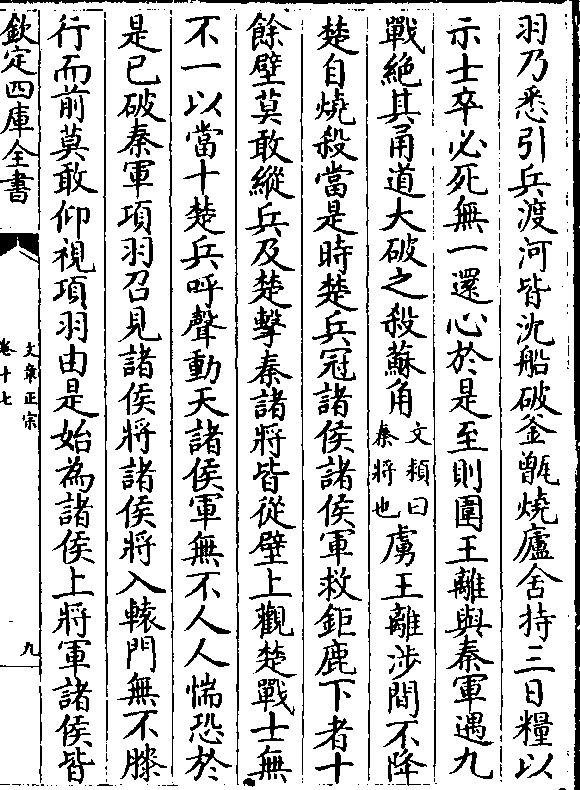 羽乃悉引兵渡河皆沈船破釜甑燒廬舍持三日糧以
示士卒必死無一還心於是至則圍王離與秦軍遇九
戰絶其甬道大破之殺蘇角文頴曰秦將也虜王離涉間不降
楚自燒殺當是時楚兵冠諸侯諸侯軍救鉅鹿下者十
餘壁莫敢縱兵及楚擊秦諸將皆從壁上觀楚戰士無
不一以當十楚兵呼聲動天諸侯軍無不人人惴恐於
是已破秦軍項羽召見諸侯將諸侯將入轅門無不膝
行而前莫敢仰視項羽由是始為諸侯上將軍諸侯皆
欽定四庫全書
文章正宗
卷十七
九